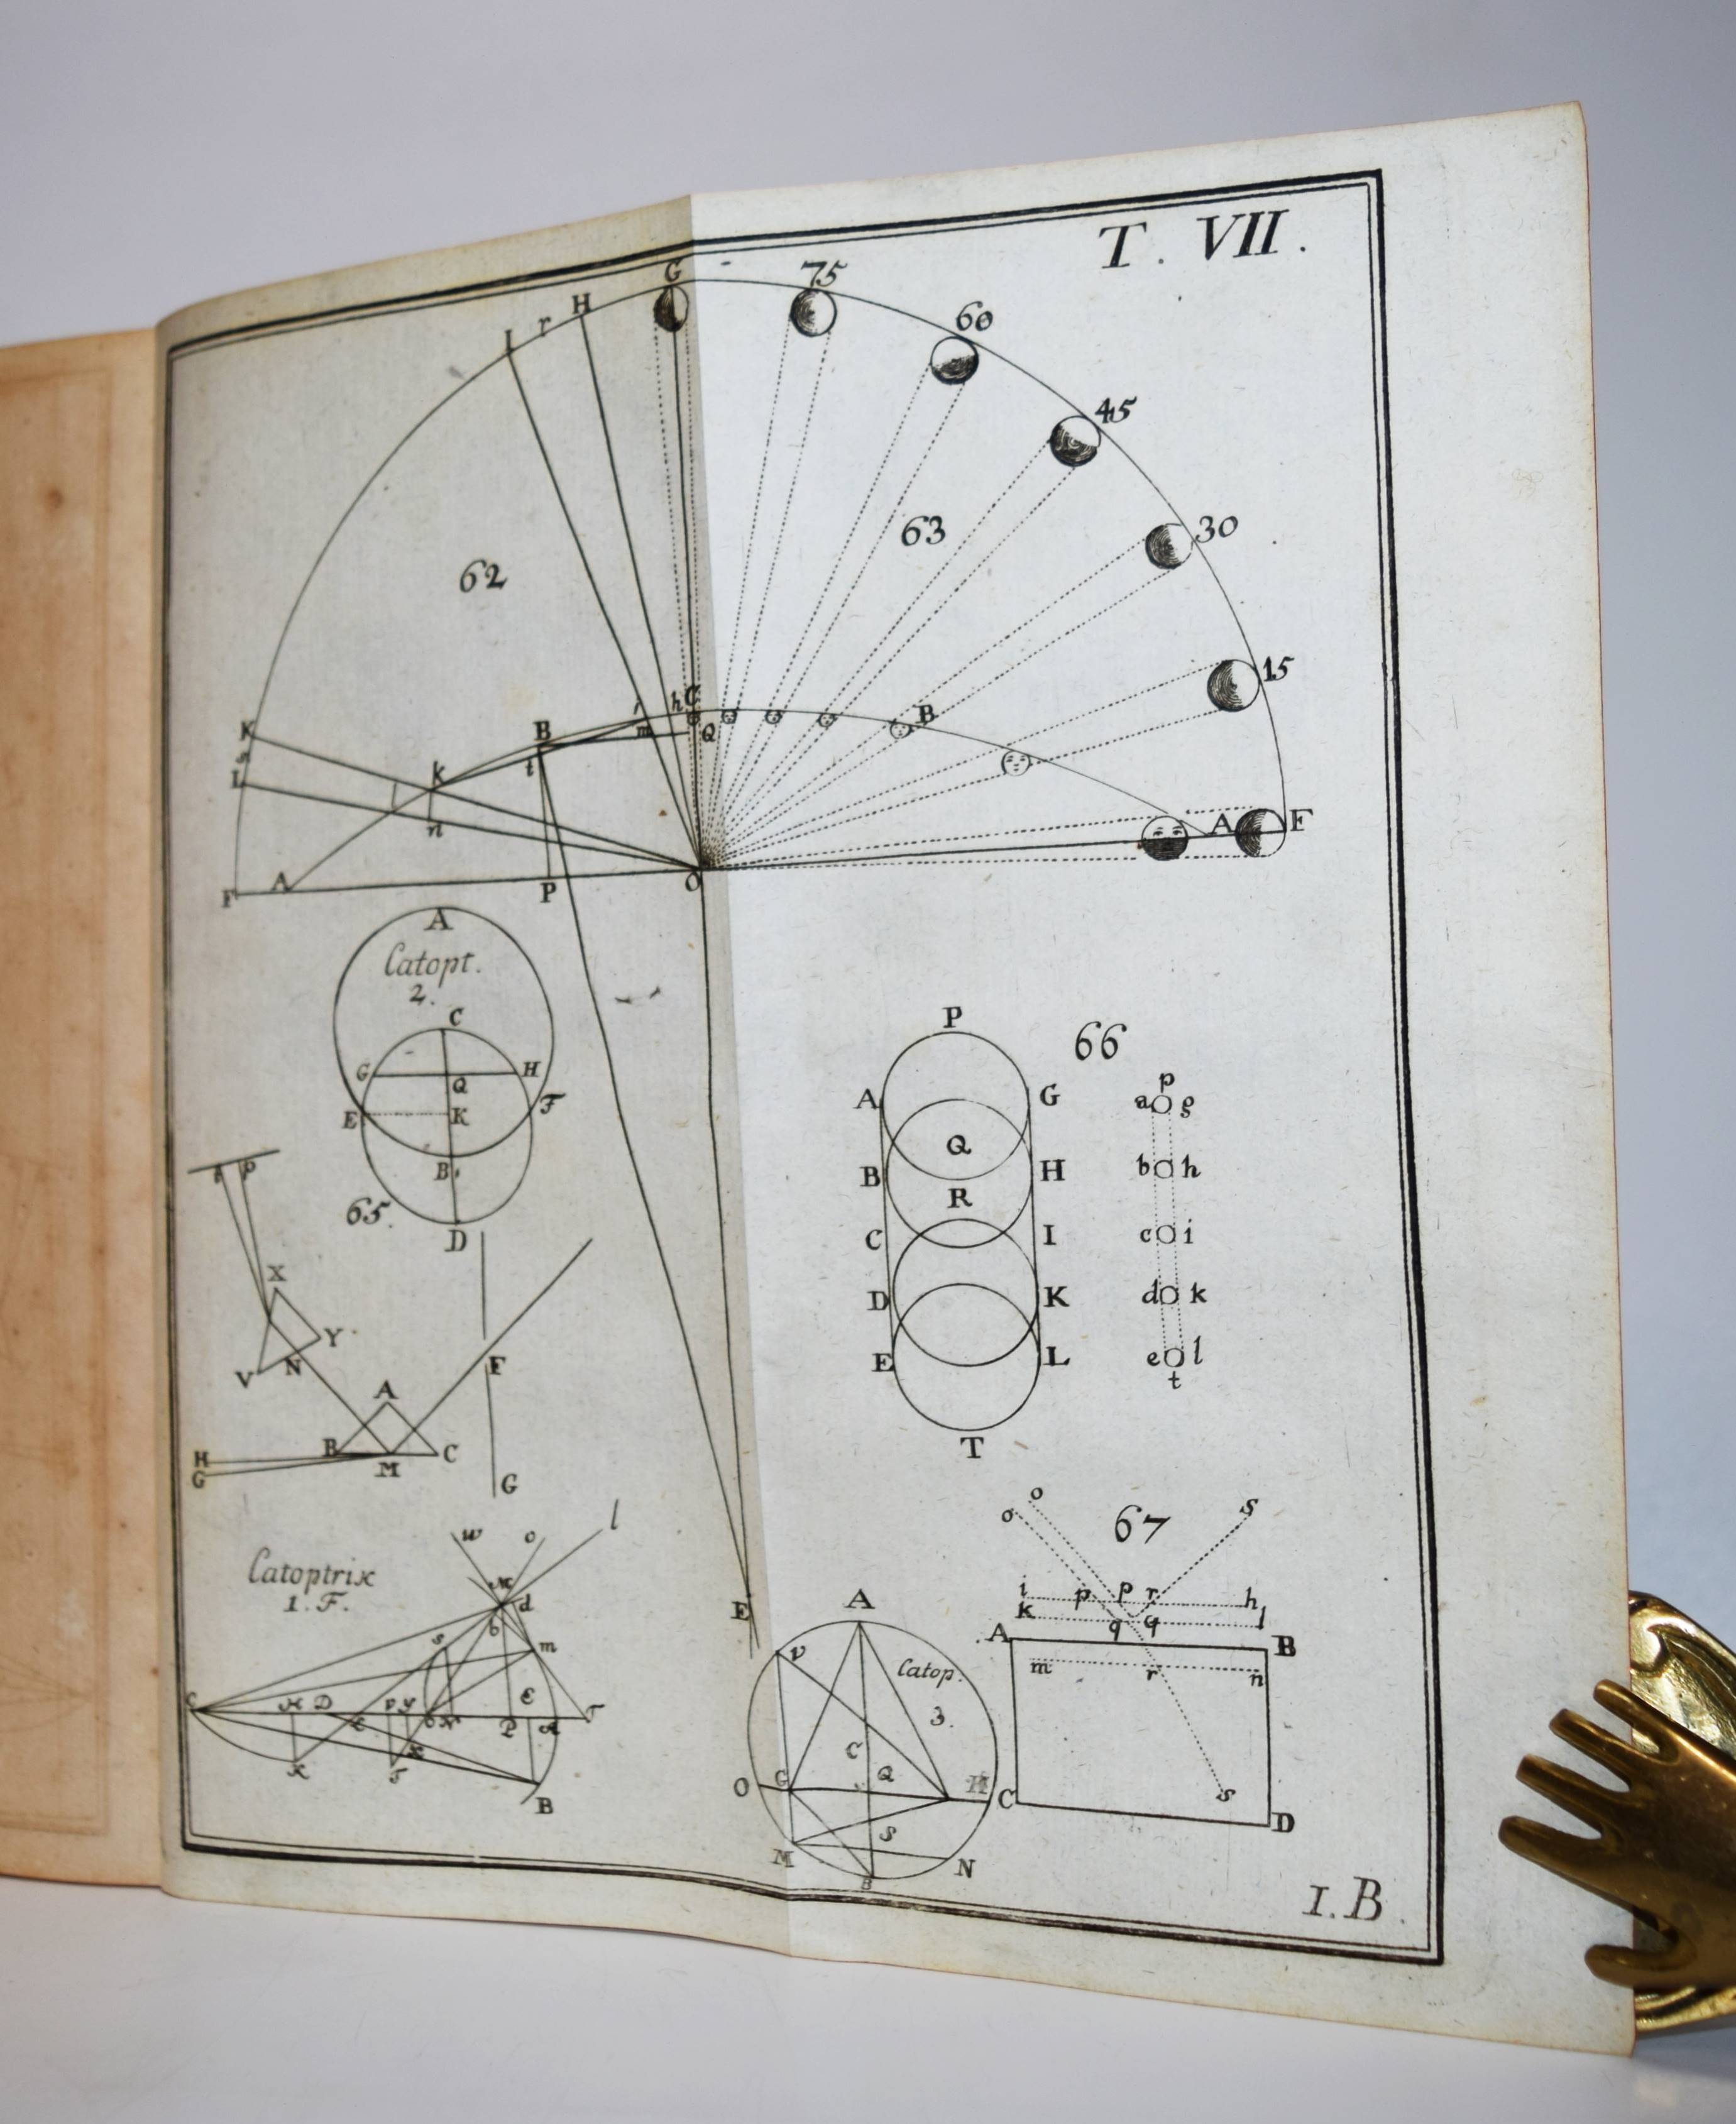 T. VII.
G 75
60
45
30
15
I r H
62
63
K
L
k
n
B
t
m
h C
Q
B
A F
F A P O
A
Catopt.
2.
C
G H
Q
E K F
B
65.
D
X
Y
V N
A
B C
M
H
G
F
G
E
P
66
A G
Q
B H
R
C I
D K
E L
T
p
a g
b h
c i
d k
e l
t
Catoptrix
1. F.
w o l
d
b
m
s
D
P
B
A
V
Catop.
3.
C
O G Q H
S
M N
B
o
o
67
s
i p p r h
k q q l
A B
m r n
s
C D
I. B.